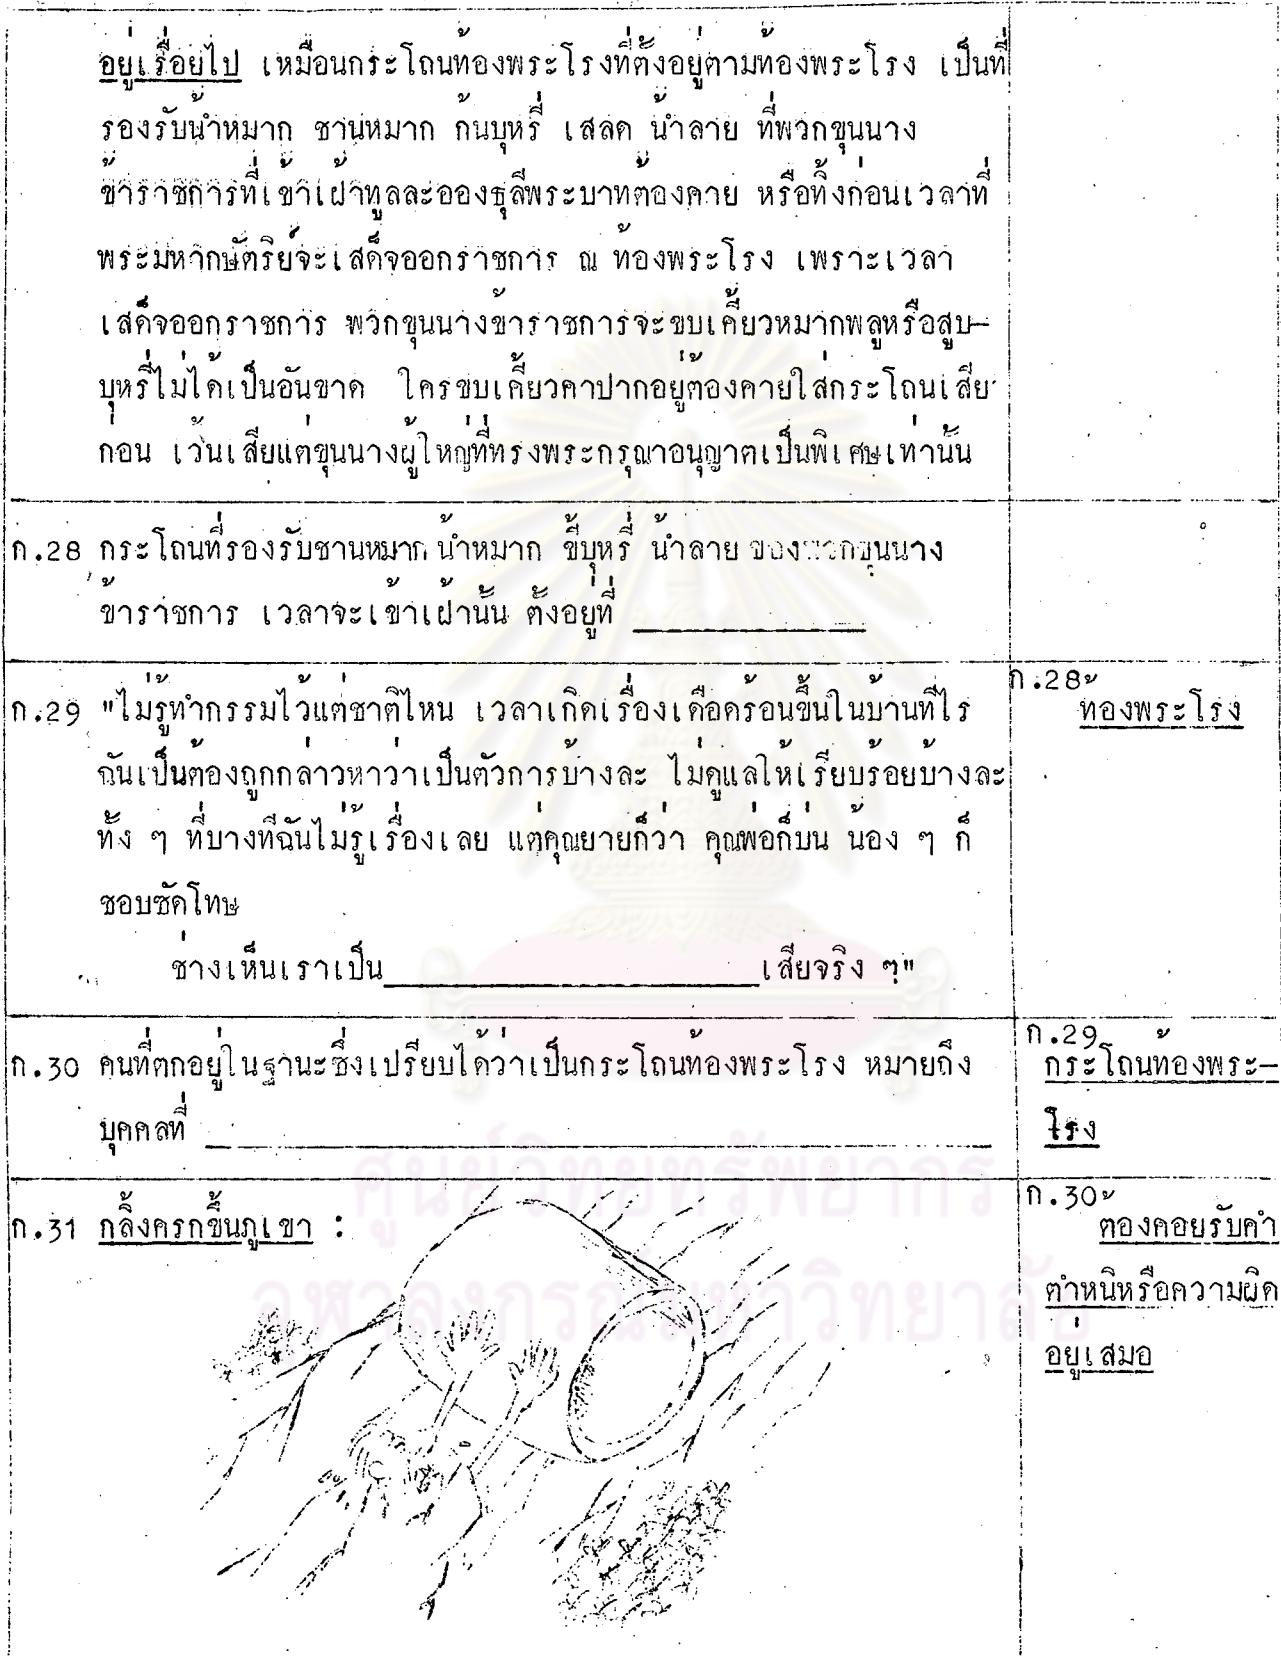 อยู่เรื่อยไป เหมือนกระโถนท้องพระโรงที่ตั้งอยู่ตามท้องพระโรง เป็นที่
รองรับน้ำหมาก ชานหมาก ก้นบุหรี่ เสลด น้ำลาย ที่พวกขุนนาง
ข้าราชการที่เข้าเฝ้าทูลละอองธุลีพระบาทต้องคาย หรือทิ้งก่อนเวลาที่
พระมหากษัตริย์จะเสด็จออกราชการ ณ ท้องพระโรง เพราะเวลา
เสด็จออกราชการ พวกขุนนางข้าราชการจะขบเคี้ยวหมากพลูหรือสูบ-
บุหรี่ไม่ได้เป็นอันขาด ใครขบเคี้ยวคาปากอยู่ต้องคายใส่กระโถนเสีย
ก่อน เว้นเสียแต่ขุนนางผู้ใหญ่ที่ทรงพระกรุณาอนุญาตเป็นพิเศษเท่านั้น
ก.28 กระโถนที่รองรับชานหมาก น้ำหมาก ขี้บุหรี่ น้ำลาย ของพวกขุนนาง
ข้าราชการ เวลาจะเข้าเฝ้านั้น ตั้งอยู่ที่
ก.29 "ไม่รู้ทำกรรมไว้แต่ชาติไหน เวลาเกิดเรื่องเดือดร้อนขึ้นในบ้านทีไร
ฉันเป็นต้องถูกกล่าวหาว่าเป็นตัวการบ้างละ ไม่ดูแลให้เรียบร้อยบ้างละ
ทั้ง ๆ ที่บางทีฉันไม่รู้เรื่องเลย แต่คุณยายก็ว่า คุณพ่อก็บ่น น้อง ๆ ก็
ชอบซัดโทษ
ช่างเห็นเราเป็น เสียจริง ๆ"
ก.28
ท้องพระโรง
ก.30 คนที่ตกอยู่ในฐานะซึ่งเปรียบได้ว่าเป็นกระโถนท้องพระโรง หมายถึง
บุคคลที่
ก.29
กระโถนท้องพระ-
โรง
ก.31 กลิ้งครกขึ้นภูเขา :
ก.30
ต้องคอยรับคำ
ตำหนิหรือความผิด
อยู่เสมอ
ศูนย์วิทยทรัพยากร
จุฬาลงกรณ์มหาวิทยาลัย